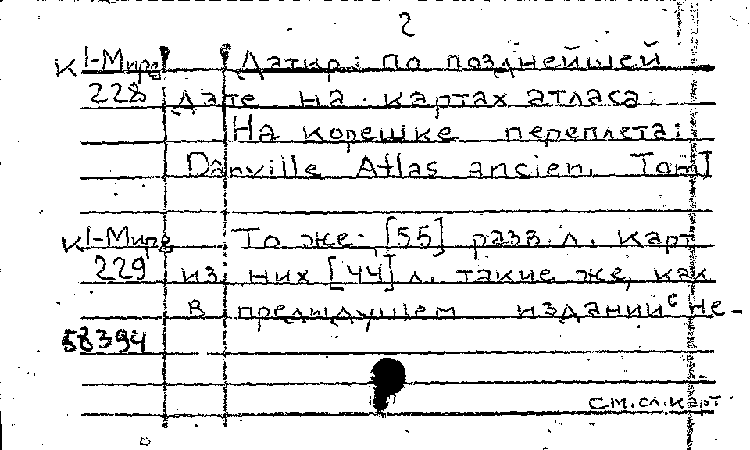 2
К 1-Мира Датир. по позднейшей
228 дате на картах атласа.
На корешке переплета:
Danville Atlas ancien. Tom I
К 1-Мира То же. [55] разв. л. карт
229 из них [44] л. такие же, как
в предыдущем издании с не-
58394
см. сл. карт